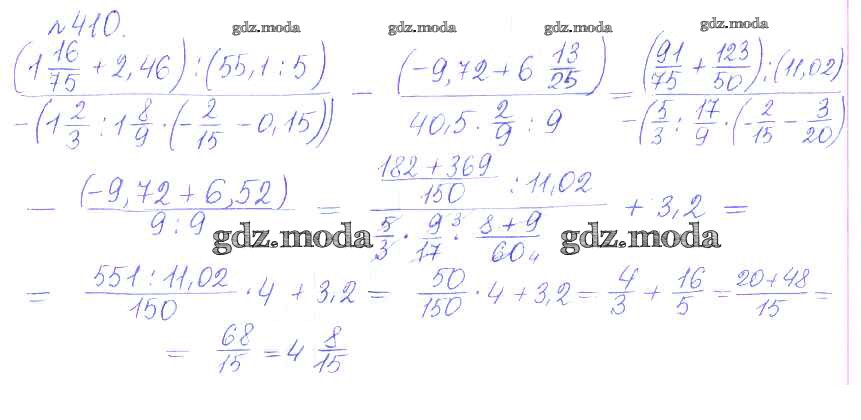 №410.
gdz.moda gdz.moda gdz.moda
(1 16/75 + 2,46) : (55,1 : 5) / -(1 2/3 : 1 8/9 · (-2/15 - 0,15)) - (-9,72 + 6 13/25) / 40,5 · 2/9 : 9 = (91/75 + 123/50) : (11,02) / -(5/3 : 17/9 · (-2/15 - 3/20)
- (-9,72 + 6,52) / 9 : 9 = 182 + 369/150 : 11,02 / 5/3 · 9 3/17 · 8 + 9/60 4 + 3,2 =
gdz.moda gdz.moda
= 551 : 11,02/150 · 4 + 3,2 = 50/150 · 4 + 3,2 = 4/3 + 16/5 = 20 + 48/15 =
= 68/15 = 4 8/15